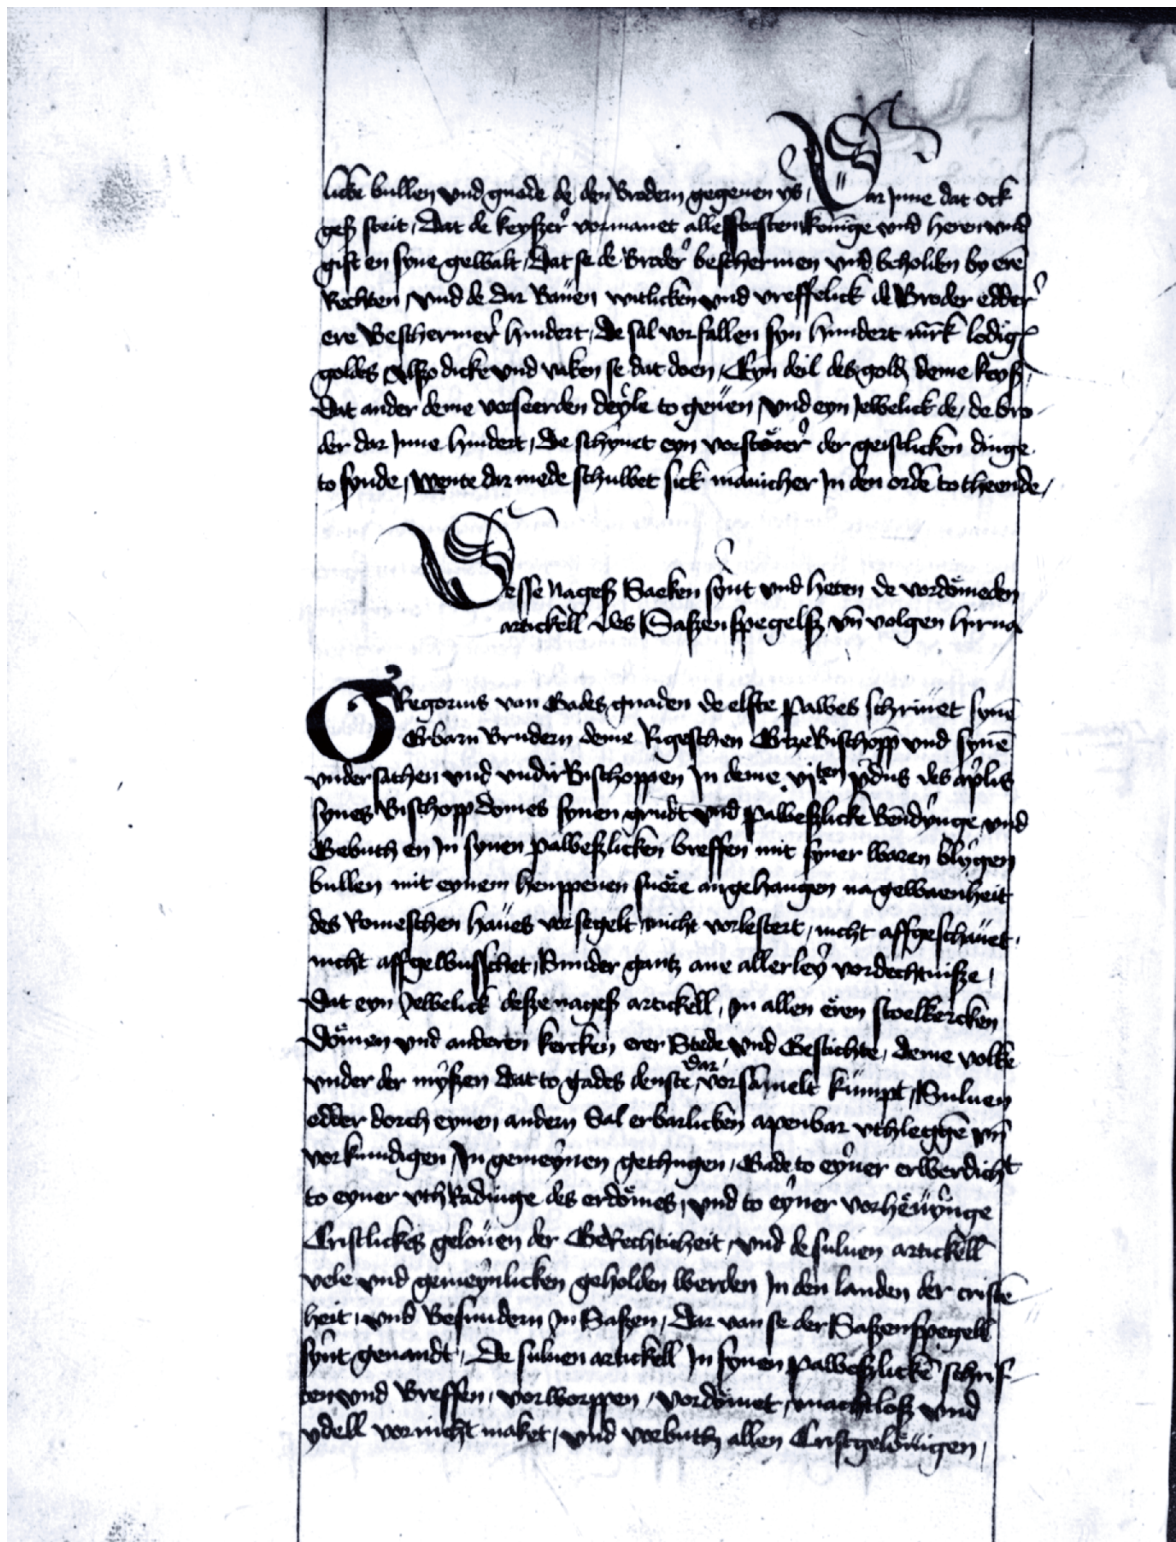 licke bullen vnd gnade de den Brodern gegeuen ys, Dar Inne dat ock
gesz steit, Dat de keyszer vormanet alle forsten konnige vnd heren vnd
gift en syne gewalt, Dat se de Broder beschermen vnd beholden by ere
Rechten, vnd de dar Bauen witlicken vnd vreffelick de Broder edder
ere Beschermer hindert, De sal vorfallen syn hundert mrk lodig
goldes, Also dicke vnd vaken se dat doen, Eyn deil des goldz deme keysz
Dat ander deme vorseerden deyle to geuen, vnd eyn Jewelick de, de bro
der dar Inne hindert, De schynet eyn vorstorer der geistlicken dinge
to synde, wente dar mede schuwet sick mannicher In den orde to theende,
Desse nagesz Saeken synt vnd heten de vordomeden
artickell des Saszenspegelsz vn volgen hirna
GRegorius van Gades gnaden de elfte pawes schriuet syne
Erbarn Brudern deme Rigeschen ErtzeBischopp vnd syne
vndersathen vnd vndir Bischoppen In deme vjten ydus des aplis
synes Bischoppdomes synen grudt vnd paweszlicke Bendynge vnd
Gebuth en In synen paweszlicken breffen mit syner waren blygen
bullen mit eynem henppenen snore angehangen na gewaenheit
des Romeschen haues vorsegelt, nicht vorlestert, nicht affgeschauet,
nicht affgewusschet, Sunder gantz ane allerley vordechtnisze,
Dat eyn Jewelick desze nagesz artickell, In allen eren stoelkercken
Domen vnd anderen kercken erer Stede vnd Gestichte, deme volke
vnder der myszen dat to gades denste dar vorsamelt kumpt, Suluen
edder dorch eynen andern Sal erbarlicken apenbar vthleggen vn
vorkundigen In gemeynen gethugen, Gade to eyner erwerdicht
to eyner vthRadinge des erdomes, vnd to eyner vorheuynge
Cristlickes gelouen der GeRechticheit, vnd de suluen artickell
vele vnd gemeynlicken geholden werden In den landen der criste
heit, vnd Besundern In Saszen, Dar van se der Saszenspegell
synt genandt, De suluen artickell In synen paweszlicke schrif
ten vnd Breffen, vorworppen, vordomet, machtlosz vnd
ydell vornicht maket, vnd vorbuth allen Cristgelouigen,